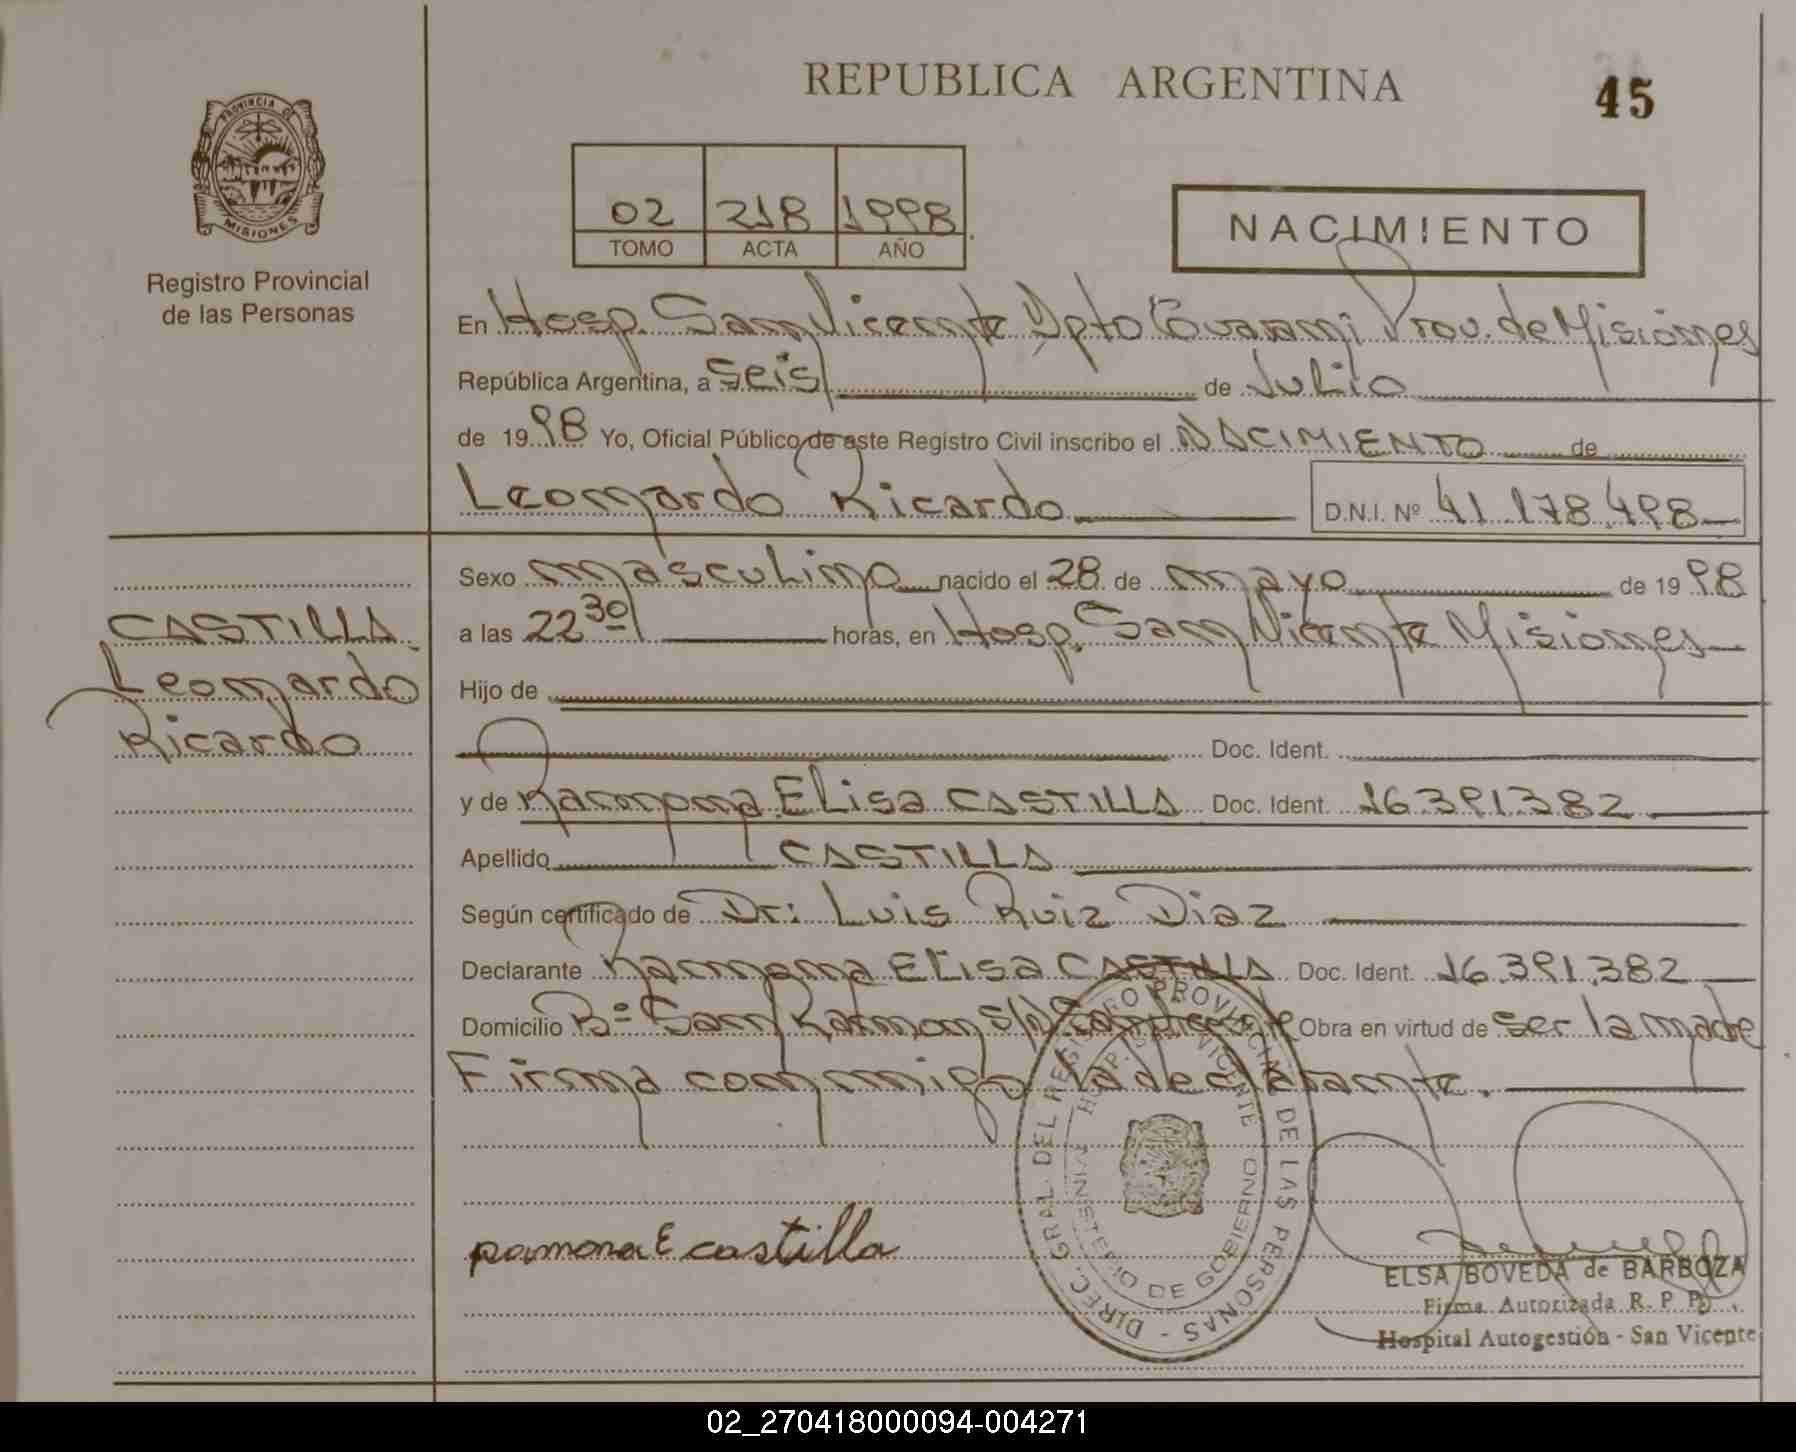 REPUBLICA ARGENTINA
45
PROVINCIA DE
MISIONES
Registro Provincial
de las Personas
02 218 1998
TOMO ACTA AÑO
NACIMIENTO
En Hosp. San Vicente Dpto Guarani Prov. de Misiones
República Argentina, a seis de Julio
de 1998 Yo, Oficial Público de este Registro Civil inscribo el NACIMIENTO de
Leonardo Ricardo D.N.I. Nº 41.178.498
Sexo masculino nacido el 28 de mayo de 1998
a las 22 30 horas, en Hosp. San Vicente Misiones
Hijo de
Doc. Ident.
y de Ramona Elisa CASTILLA Doc. Ident. 16.391.382
Apellido CASTILLA
Según certificado de Dr: Luis Ruiz Diaz
Declarante Ramona Elisa CASTILLA Doc. Ident. 16.391.382
Domicilio Bº San Ramon s/n San Vicente Obra en virtud de ser la madre
Firma conmigo la declarante.
CASTILLA
Leonardo
Ricardo
DIREC. GRAL. DEL REGISTRO PROVINCIAL DE LAS PERSONAS -
HOSP. SAN VICENTE
MINISTERIO DE GOBIERNO
ramona E castilla
ELSA BOVEDA de BARBOZA
Firma Autorizada R. P. P.
Hospital Autogestión - San Vicente
02_270418000094-004271